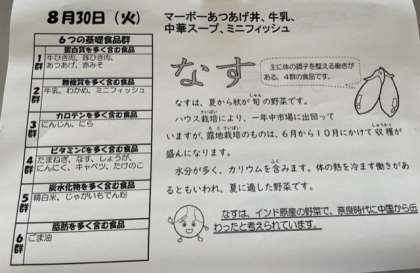 8月30日（火）
マーボーあつあげ丼、牛乳、
中華スープ、ミニフィッシュ
6つの基礎食品群
1群
蛋白質を多く含む食品
牛ひき肉、豚ひき肉、
あつあげ、赤みそ
2群
無機質を多く含む食品
牛乳、わかめ、ミニフィッシュ
3群
カロテンを多く含む食品
にんじん、にら
4群
ビタミンCを多く含む食品
たまねぎ、なす、しょうが、
にんにく、キャベツ、たけのこ
5群
炭水化物を多く含む食品
精白米、じゃがいもでん粉
6群
脂肪を多く含む食品
ごま油
なす
主に体の調子を整える働きが
ある、4群の食品です。
なすは、夏から秋が旬の野菜です。
ハウス栽培により、一年中市場に出回って
いますが、露地栽培のものは、6月から10月にかけて収穫が
盛んになります。
水分が多く、カリウムを含みます。体の熱を冷ます働きがあ
るともいわれ、夏に適した野菜です。
なすは、インド原産の野菜で、奈良時代に中国から伝
わったと考えられています。